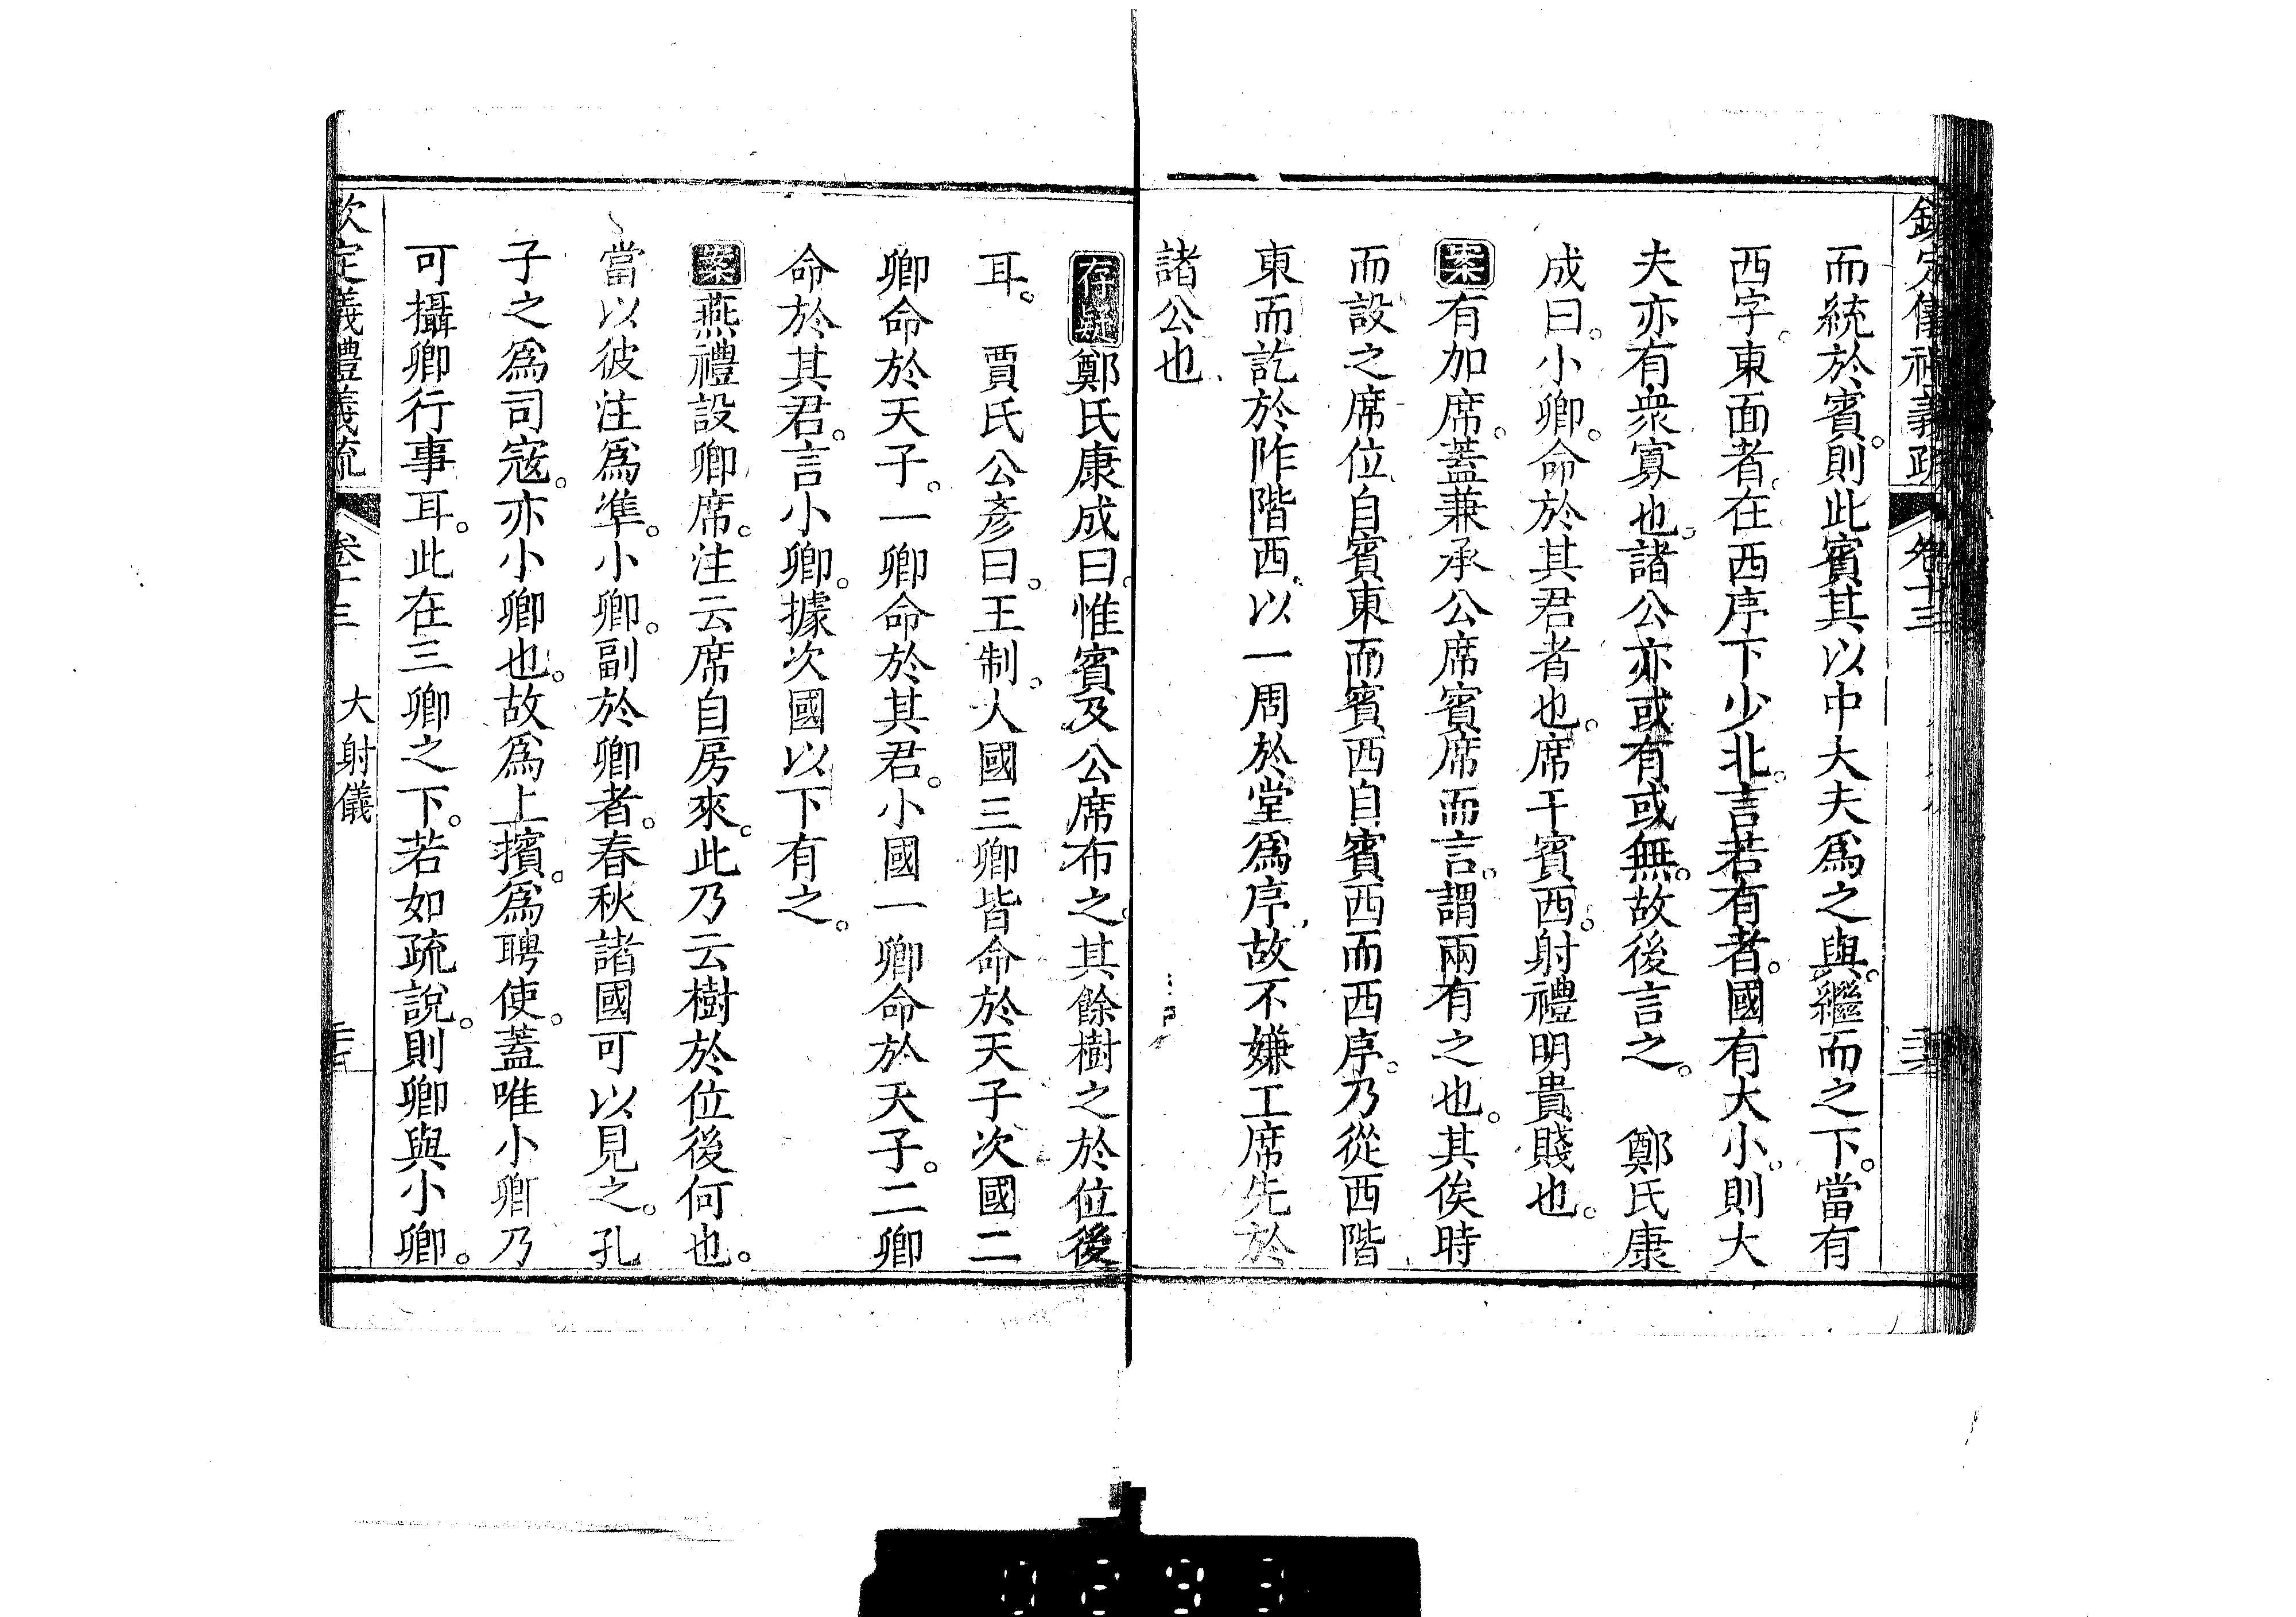 欽定儀禮義疏 卷十三
而統於賓。則此賓其以中大夫爲之與。繼而之下。當有
西字。東面者。在西序下少北。言若有者。國有大小。則大
夫亦有衆寡也。諸公亦或有或無。故後言之。 鄭氏康
成曰。小卿。命於其君者也。席于賓西。射禮明貴賤也。
案有加席。蓋兼承公席賓席而言。謂兩有之也。其俟時
而設之席位。自賓東而賓西自賓西而西序。乃從西階
東而訖於阼階西。以一周於堂爲序。故不嫌工席先於
諸公也
存疑鄭氏康成曰。惟賓及公席布之。其餘樹之於位後
耳。 賈氏公彥曰。王制。人國三卿皆命於天子次國二
卿命於天子。一卿命於其君。小國一卿命於天子。二卿
命於其君。言小卿。據次國以下有之。
案燕禮設卿席。注云席自房來。此乃云樹於位後何也。
當以彼注爲準。小卿。副於卿者。春秋諸國可以見之。孔
子之爲司寇。亦小卿也。故爲上擯。爲聘使。蓋唯小卿乃
可攝卿行事耳。此在三卿之下。若如疏說。則卿與小卿。
欽定義禮義疏 卷十三 大射儀
0293